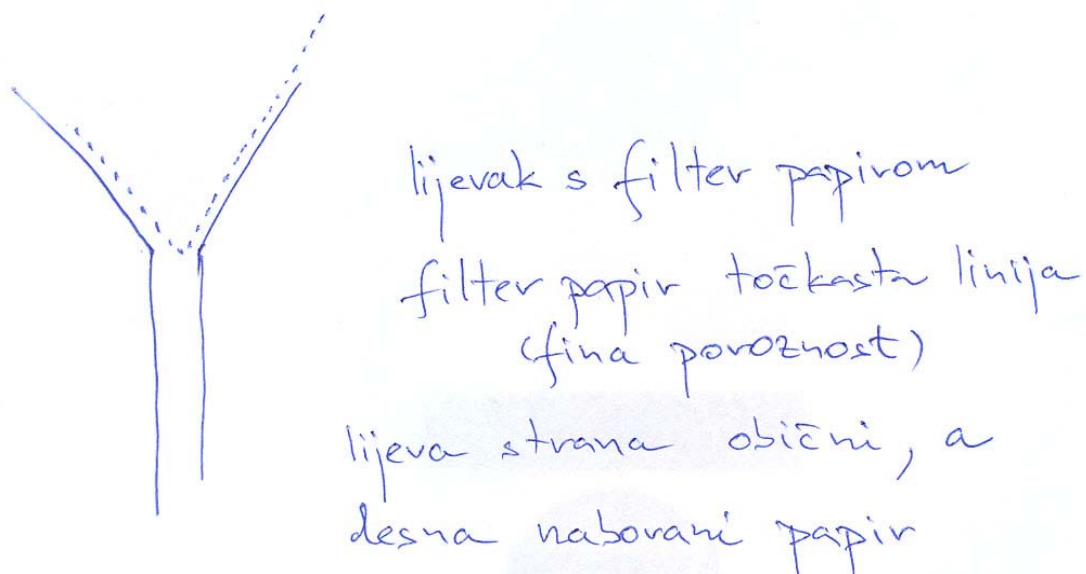 lijevak s filter papirom
filter papir točkasta linija
(fina poroznost)
lijeva strana obični, a
desna naborani papir